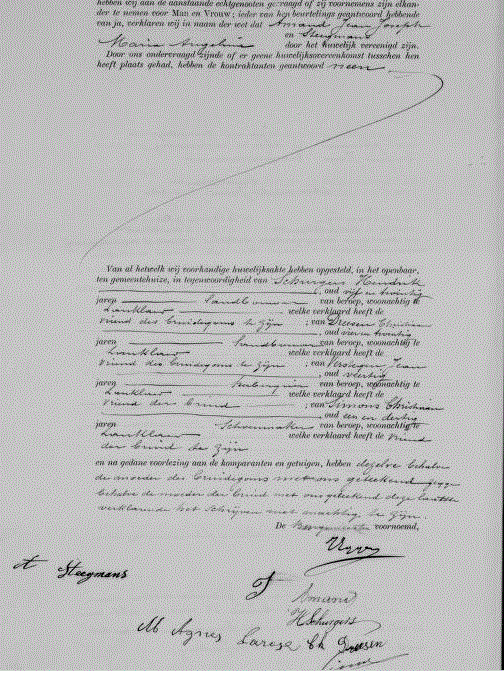 hebben wij aan de aanstaande echtgenooten gevraagd of zij voornemens zijn elkan-
der te nemen voor Man en Vrouw; ieder van hen beurtelings geantwoord hebbende
van ja, verklaren wij in naam der wet dat Amand Jean Joseph
en Steegmans
Maria Angelina door het huwelijk vereenigd zijn.
Door ons ondervraagd zijnde of er geene huwelijksovereenkomst tusschen hen
heeft plaats gehad, hebben de kontraktanten geantwoord neen
Van al hetwelk wij voorhandige huwelijksakte hebben opgesteld, in het openbaar,
ten gemeentehuize, in tegenwoordigheid van Schurgers Hendrik
, oud vijf en twintig
jaren Landbouwer van beroep, woonachtig te
Lanklaar welke verklaard heeft de
vriend des Bruidegoms te zijn ; van Driesen Christiaan
, oud vier en twintig
jaren Landbouwer van beroep, woonachtig te
Lanklaar welke verklaard heeft de
vriend des Bruidegoms te zijn ; van Jean
, oud veertig
jaren van beroep, woonachtig te
Lanklaar welke verklaard heeft de
vriend der Bruid ; van Simons Christiaan
, oud een en dertig
jaren Schoenmaker van beroep, woonachtig te
Lanklaar welke verklaard heeft de vriend
der Bruid te zijn
en na gedane voorlezing aan de komparanten en getuigen, hebben dezelve behalve
de moeder des Bruidegoms met ons geteekend
behalve de moeder der Bruid met ons geteekend deze laatste
verklarende het schrijven niet machtig te zijn.
De Burgemeester voornoemd,
A Steegmans
J Amand
H Schurgers
M Agnes Ch Driesen